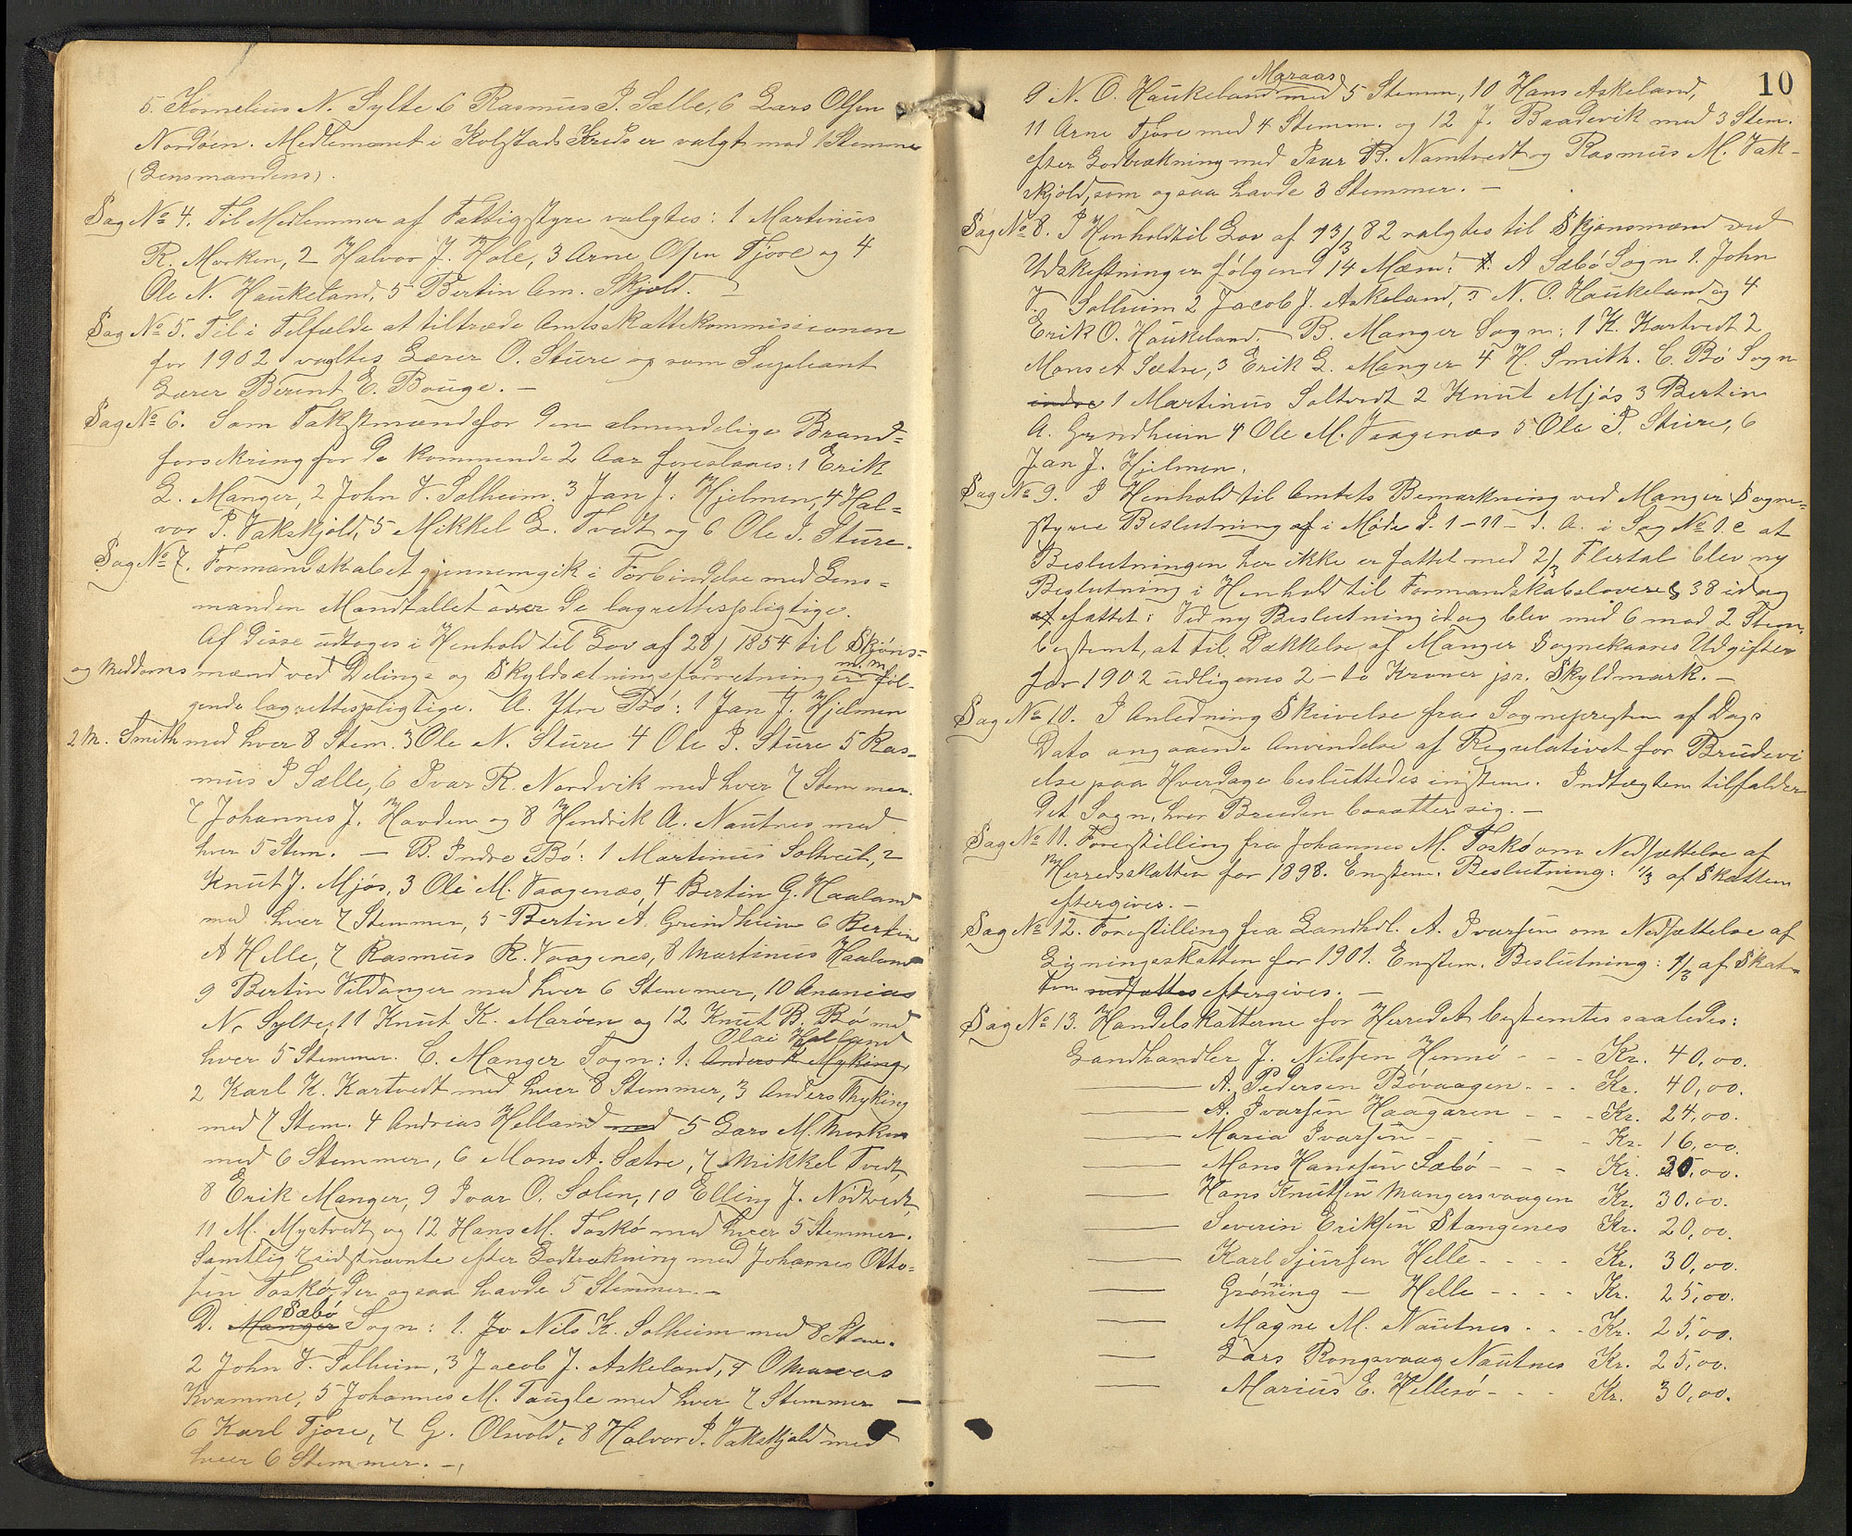 5. Kornelius N. Sylte 6 Rasmus P. Sælle, 6 Lars Olsen
Nordöen. Medlemmet i Kolstads Kreds er valgt med 1 Stemme
(Lensmandens).
Sag No 4. Til Medlemmer af Fattigstyre valgtes: 1 Martinus
R. Morken, 2 Halvor J. Hole, 3 Arne Olsen Fjore og 4
Ole N. Haukeland, 5 Bertin Am. Skjold. —
Sag No 5. Til i Tilfælde at tiltræde Amtsskattekommissionen
for 1902 valgtes Lærer O. Sture og som Supleant
Lærer Berent E. Bouge. —
Sag No 6. Som Takstmænd for den almindelige Brand=
forsikring for de kommende 2 Aar foreslaaes: 1 Erik
L. Manger, 2 John V. Solheim. 3 Jan J. Hjelmen, 4 Hal=
vor P. Vakskjold, 5 Mikkel L. Tvedt og 6 Ole P. Sture.
Sag No 7. Formandskabet gjennemgik i Forbindelse med Lens=
manden Mandtallet over de lagrettespligtige.
Af disse udtoges i Henhold til Lov af 28/3 1854 til Skjöns=
og Meddoms mænd ved Delings og Skyldsætningsforretning m. m. föl-
gende lagrettespligtige. A. Ytre Bö: 1 Jan J. Hjelmen
2 M. Smith med hver 8 Stem. 3 Ole N. Sture 4 Ole P. Sture 5 Ras-
mus P Sælle, 6 Ivar R. Nordvik med hver 7 Stemmer.
7 Johannes J. Havden og 8 Hendrik A. Nautnes med
hver 5 Stem. — B. Indre Bö: 1 Martinus Soltvedt, 2
Knut J. Mjös, 3 Ole M. Vaagenæs, 4 Bertin G. Haaland
med hver 7 Stemmer, 5 Bertin A. Grindheim 6 Bertin
A Helle, 7 Rasmus R. Vaagenes, 8 Martinus Haaland
9 Bertin Vildanger med hver 6 Stemmer, 10 Ananias
N. Sylte, 11 Knut K. Maröen og 12 Knut B. Bö med
Olai Halland
hver 5 Stemmer. C. Manger Sogn: 1. Anders K Myking,
2 Karl K. Kartvedt med hver 8 Stemmer, 3 Anders Myking
med 7 Stem. 4 Andreas Helland med 5 Lars M. Morken
med 6 Stemmer, 6 Mons A. Sætre, 7 Mikkel Tvedt,
8 Erik Manger, 9 Ivar O. Solin, 10 Elling J. Nodtvedt,
11 M. Myrtvedt og 12 Hans M. Toskö med hver 5 Stemmer.
Samtlig sidstnævnte efter Lodtrækning med Johannes Otto=
sen Toskö, der ogsaa havde 5 Stemmer. —
Sæbö
D. Manger Sogn: 1. Jo Nils K. Solheim med 8 Stem.
2 John V. Solheim, 3 Jacob J. Askeland, 4 O Marcus
Kvamme, 5 Johannes M. Taugle med hver 7 Stemmer —
6 Karl Fjore, 7 G. Olsvold, 8 Halvor P. Vakskjold med
hver 6 Stemmer. —
10
Maraas
9 N. O. Haukeland med 5 Stemm, 10 Hans Askeland,
11 Arne Fjore med 4 Stemm. og 12 J. Baadevik med 3 Stem.
efter Lodtrækning med Ivar B. Namtvedt og Rasmus M. Vak-
skjold, som ogsaa havde 3 Stemmer. —
Sag No 8. I Henhold til Lov af 13/3 82 valgtes til Skjönsmænd ved
Udskiftninger fölgend 14 Mænd: A Sæbö Sogn 1. John
V. Solheim 2 Jacob J. Askeland, 3 N. O. Haukeland og 4
Erik O. Haukeland. B. Manger Sogn: 1 K. Kartvedt 2
Mons A Sætre, 3 Erik L. Manger 4 H. Smith. C. Bö Sogn
indre 1 Martinus Soltvedt 2 Knut Mjös 3 Bertin
A. Grindheim 4 Ole M. Vaagenæs 5 Ole P. Sture, 6
Jan J. Hjelmen.
Sag No 9. I Henhold til Amtets Bemærkning ved Manger Sogne=
styres Beslutning af i Møde d. 1-11- d. A. i Sag No 1 c at
Beslutningen her ikke er fattet med 2/3 Flertal blev ny
Beslutning i Henhold til Formandskabslovens § 38 idag
af efattet: Ved ny Beslutning idag blev med 6 mod 2 Stem.
bestemt, at til Dækkelse af Manger Sognekasses Udgifter
for 1902 udlignes 2 - to Kroner pr. Skyldmark. —
Sag No 10. I Anledning Skrivelse fra Sognepresten af Dags
Dato angaaende Anvendelse af Regulativet for Brudevi
else paa Hverdage besluttedes enstem. Indtægten tilfalder
det Sogn, hvor Bruden bosætter sig. —
Sag No 11. Forestilling fra Johannes M. Toskö om Nedsættelse af
Herredsskatten for 1898. Enstem. Beslutning: 1/3 af Skatten
eftergives. —
Sag No 12. Forestilling fra Landhdl. A. Ivarsen om Nedsættelse af
Ligningsskatten for 1901. Enstem. Beslutning: 1/3 af Skat-
ten nedsattes eftergives. —
Sag No 13. Handelskatterne for Herredet bestemtes saaledes:
Landhandler J. Nilssen Hennö - - - Kr. 40,00.
—— A. Pedersen Bövaagen - - - Kr. 40,00.
—— A. Ivarsen Haagaren - - - Kr. 24,00.
—— Maria Ivarsen - - - - - Kr. 16,00.
—— Mons Hanssen Sæbö - - - Kr. 35,00.
—— Hans Knutsen Mangersvaagen Kr. 30,00.
—— Severin Eriksen Stangenes Kr. 20,00.
—— Karl Sjursen Helle - - - - Kr. 30,00.
—— Gröning — Helle - - - - Kr. 25,00.
—— Magne M. Nautnes - - - Kr. 25,00.
—— Lars Rongsvaag Nautnes Kr. 25,00.
—— Marius E. Hellesö - - - Kr. 30,00.